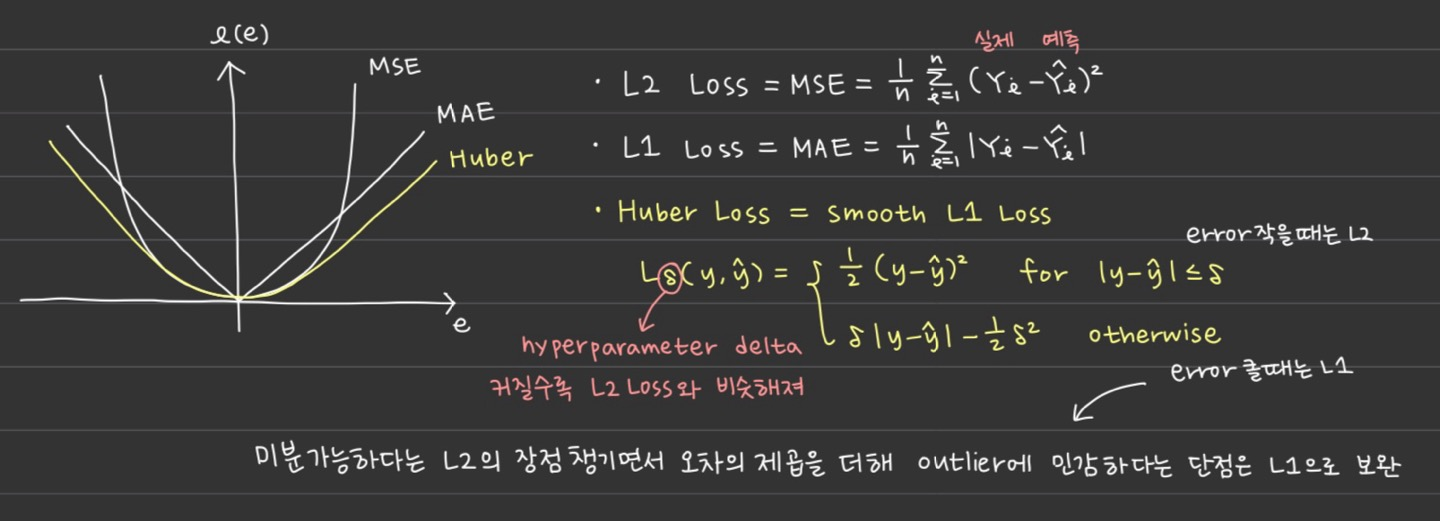 ℓ(e)
MSE
MAE
Huber
e
실제 예측
· L2 Loss = MSE = 1/n Σ_{i=1}^{n} (Yi - Ŷi)²
· L1 Loss = MAE = 1/n Σ_{i=1}^{n} |Yi - Ŷi|
· Huber Loss = smooth L1 Loss
error 작을때는 L2
Lδ(y, ŷ) = { 1/2 (y-ŷ)² for |y-ŷ| ≤ δ
δ|y-ŷ| - 1/2 δ² otherwise
hyperparameter delta
커질수록 L2 Loss와 비슷해져
error 클때는 L1
미분가능하다는 L2의 장점 챙기면서 오차의 제곱을 더해 outlier에 민감하다는 단점은 L1으로 보완